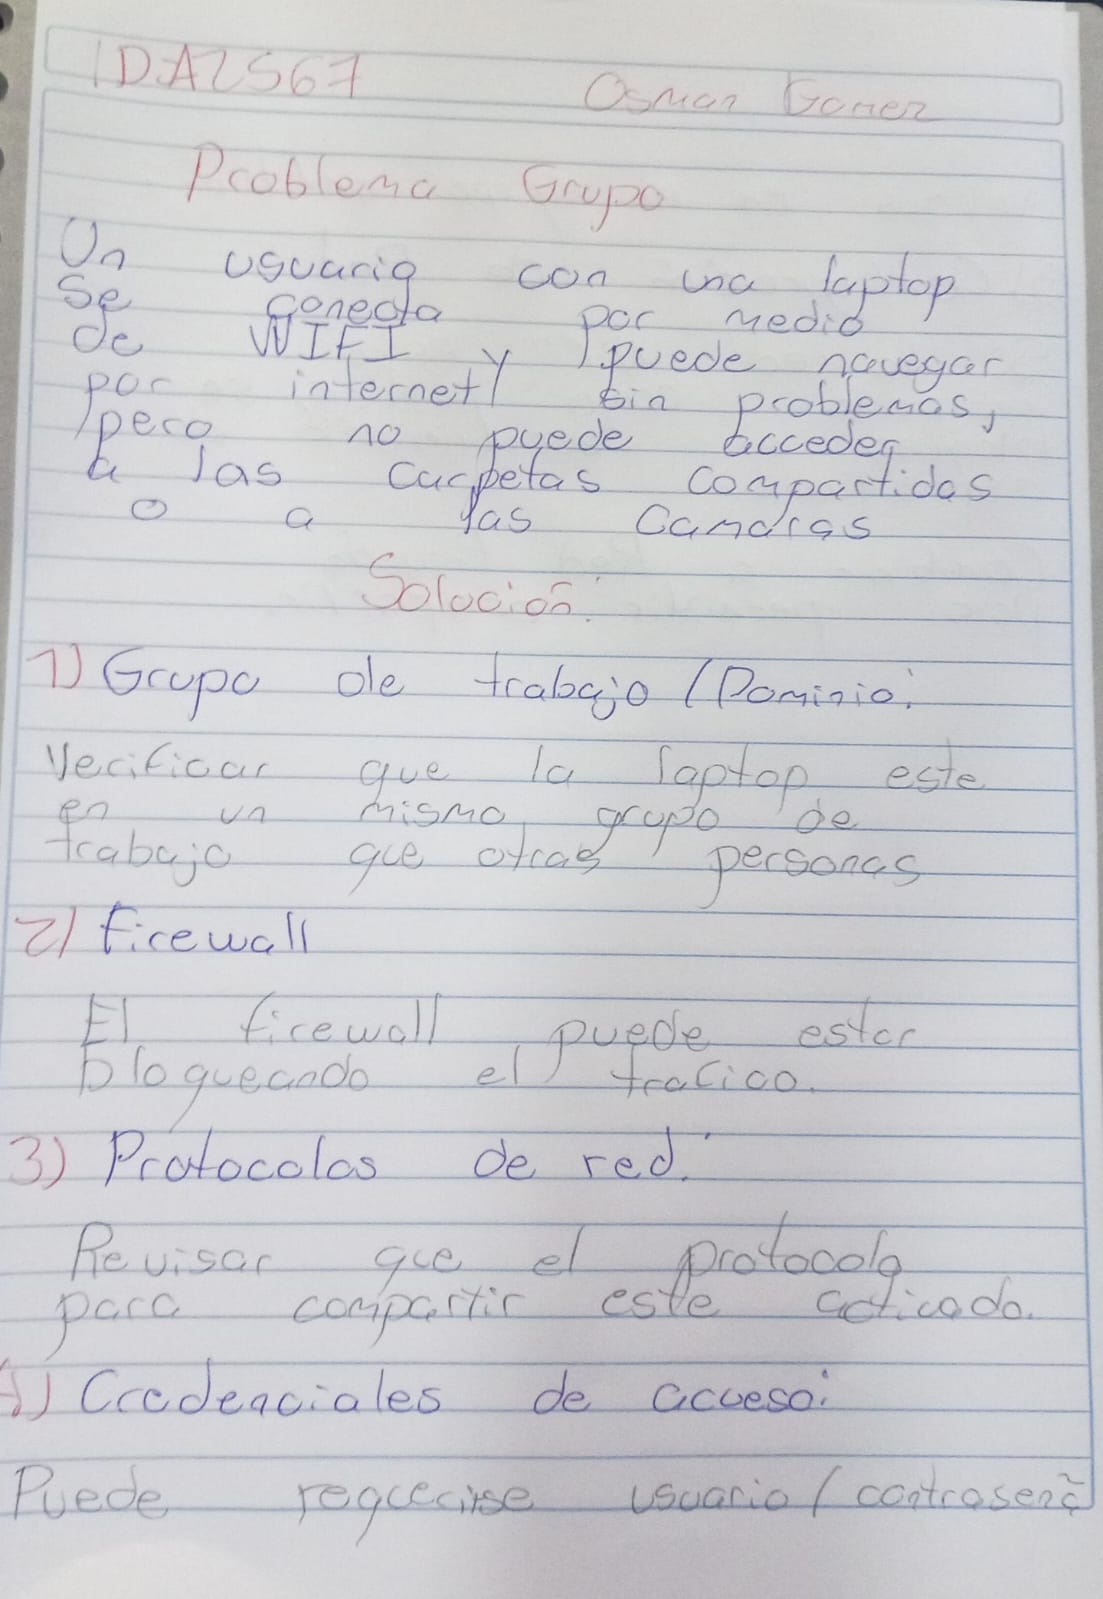 IDA2567 Osman Gomez
Problema Grupo
Un usuario con una laptop
se conecta por medio
de WIFI y puede navegar
por internet sin problemas,
pero no puede acceder
a las carpetas compartidas
o a las camaras
Solución:
1) Grupo de trabajo / Dominio:
Verificar que la laptop este
en un mismo grupo de
trabajo que otras personas
2) firewall
El firewall puede estar
bloqueando el trafico.
3) Protocolos de red:
Revisar que el protocolo
para compartir este acticado.
4) Credenciales de acceso:
Puede requerirse usuario / contraseña